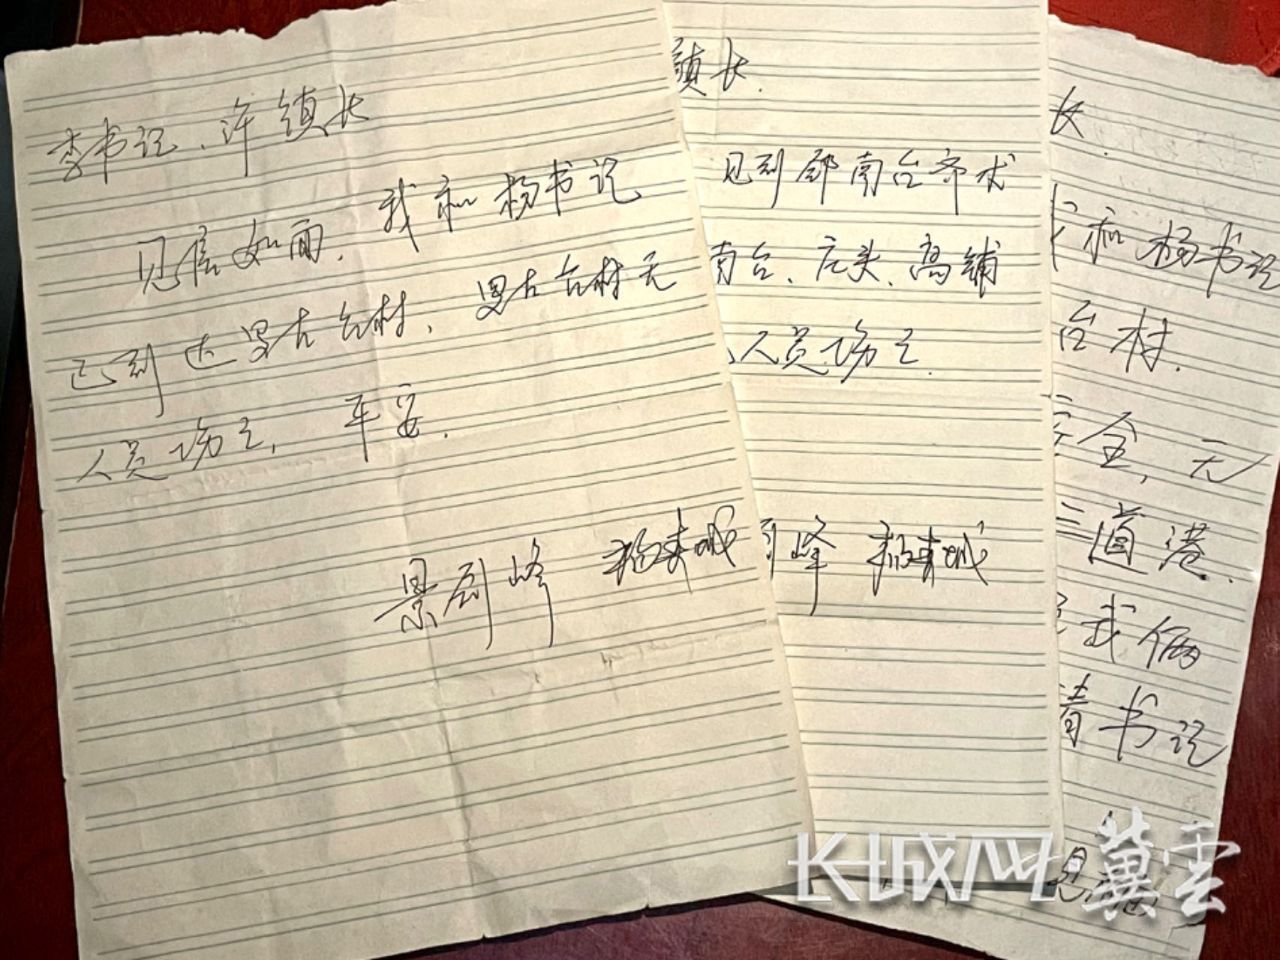 李书记、许镇长
见信如面，我和杨书记
已到达男古台村，男古台村无
人员伤亡，平安.
景剑峰 杨来城
镇长.
见到邵南台乔术
南台、庄头、高铺
人员伤亡.
剑峰 杨来城
长.
我和杨书记
台村.
安全，无
三道港.
我俩
书记
见
长城网 冀云